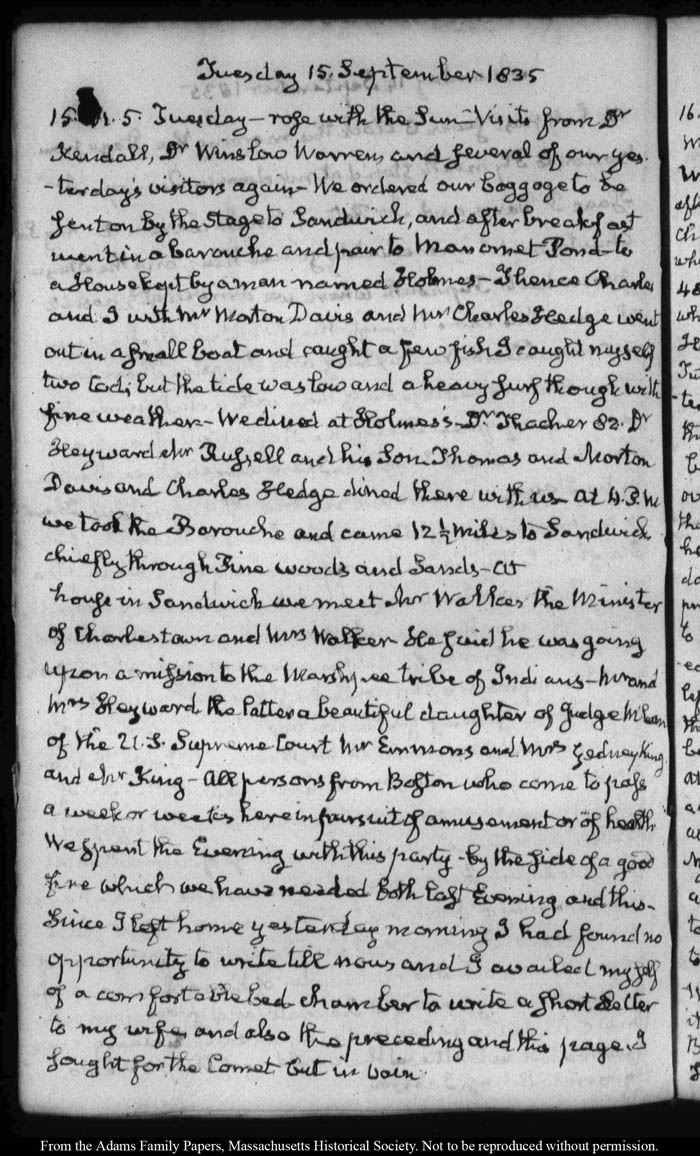 Tuesday 15. September 1835
15. 5. Tuesday – rose with the Sun – Visits from Dr
Kendall, Dr Winslow Warren and several of our yes-
-terday's visitors again – We ordered our baggage to be
sent on by the Stage to Sandwich, and after breakfast
went in a barouche and pair to Manomet Pond – to
a House kept by a man named Holmes – Thence Charles
and I with Mr Morton Davis and Mr Charles Hedge went
out in a small boat and caught a few fish, I caught myself
two Cod; but the tide was low and a heavy surf though with
fine weather – We dined at Holmes's – Dr Thacher 82. Dr
Heyward Mr Russell and his Son Thomas and Morton
Davis and Charles Hedge dined there with us – at 4. P.M
we took the Barouche and came 12 ½ miles to Sandwich
chiefly through Pine woods and Sands – At
house in Sandwich we meet Mr Walker the Minister
of Charlestown and Mrs Walker – He said he was going
upon a mission to the Marshpee tribe of Indians – Mr and
Mrs Heyward the latter a beautiful daughter of Judge McLean
of the U.S. Supreme Court Mr Emmons and Mrs Gedney King
and Mr King – All persons from Boston who come to pass
a week or weeks here in pursuit of amusement or of health
We spent the Evening with this party – by the side of a good
fire which we have needed both last Evening and this –
Since I left home yesterday morning I had found no
opportunity to write till now and I availed myself
of a comfortable bed chamber to write a short Letter
to my wife and also the preceding and this page. I
sought for the Comet but in vain
16.
From the Adams Family Papers, Massachusetts Historical Society. Not to be reproduced without permission.